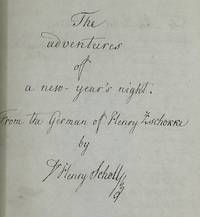 The
adventures
of
a new-year's night.
From the German of Henry Zschokke
by
Henry Scholl